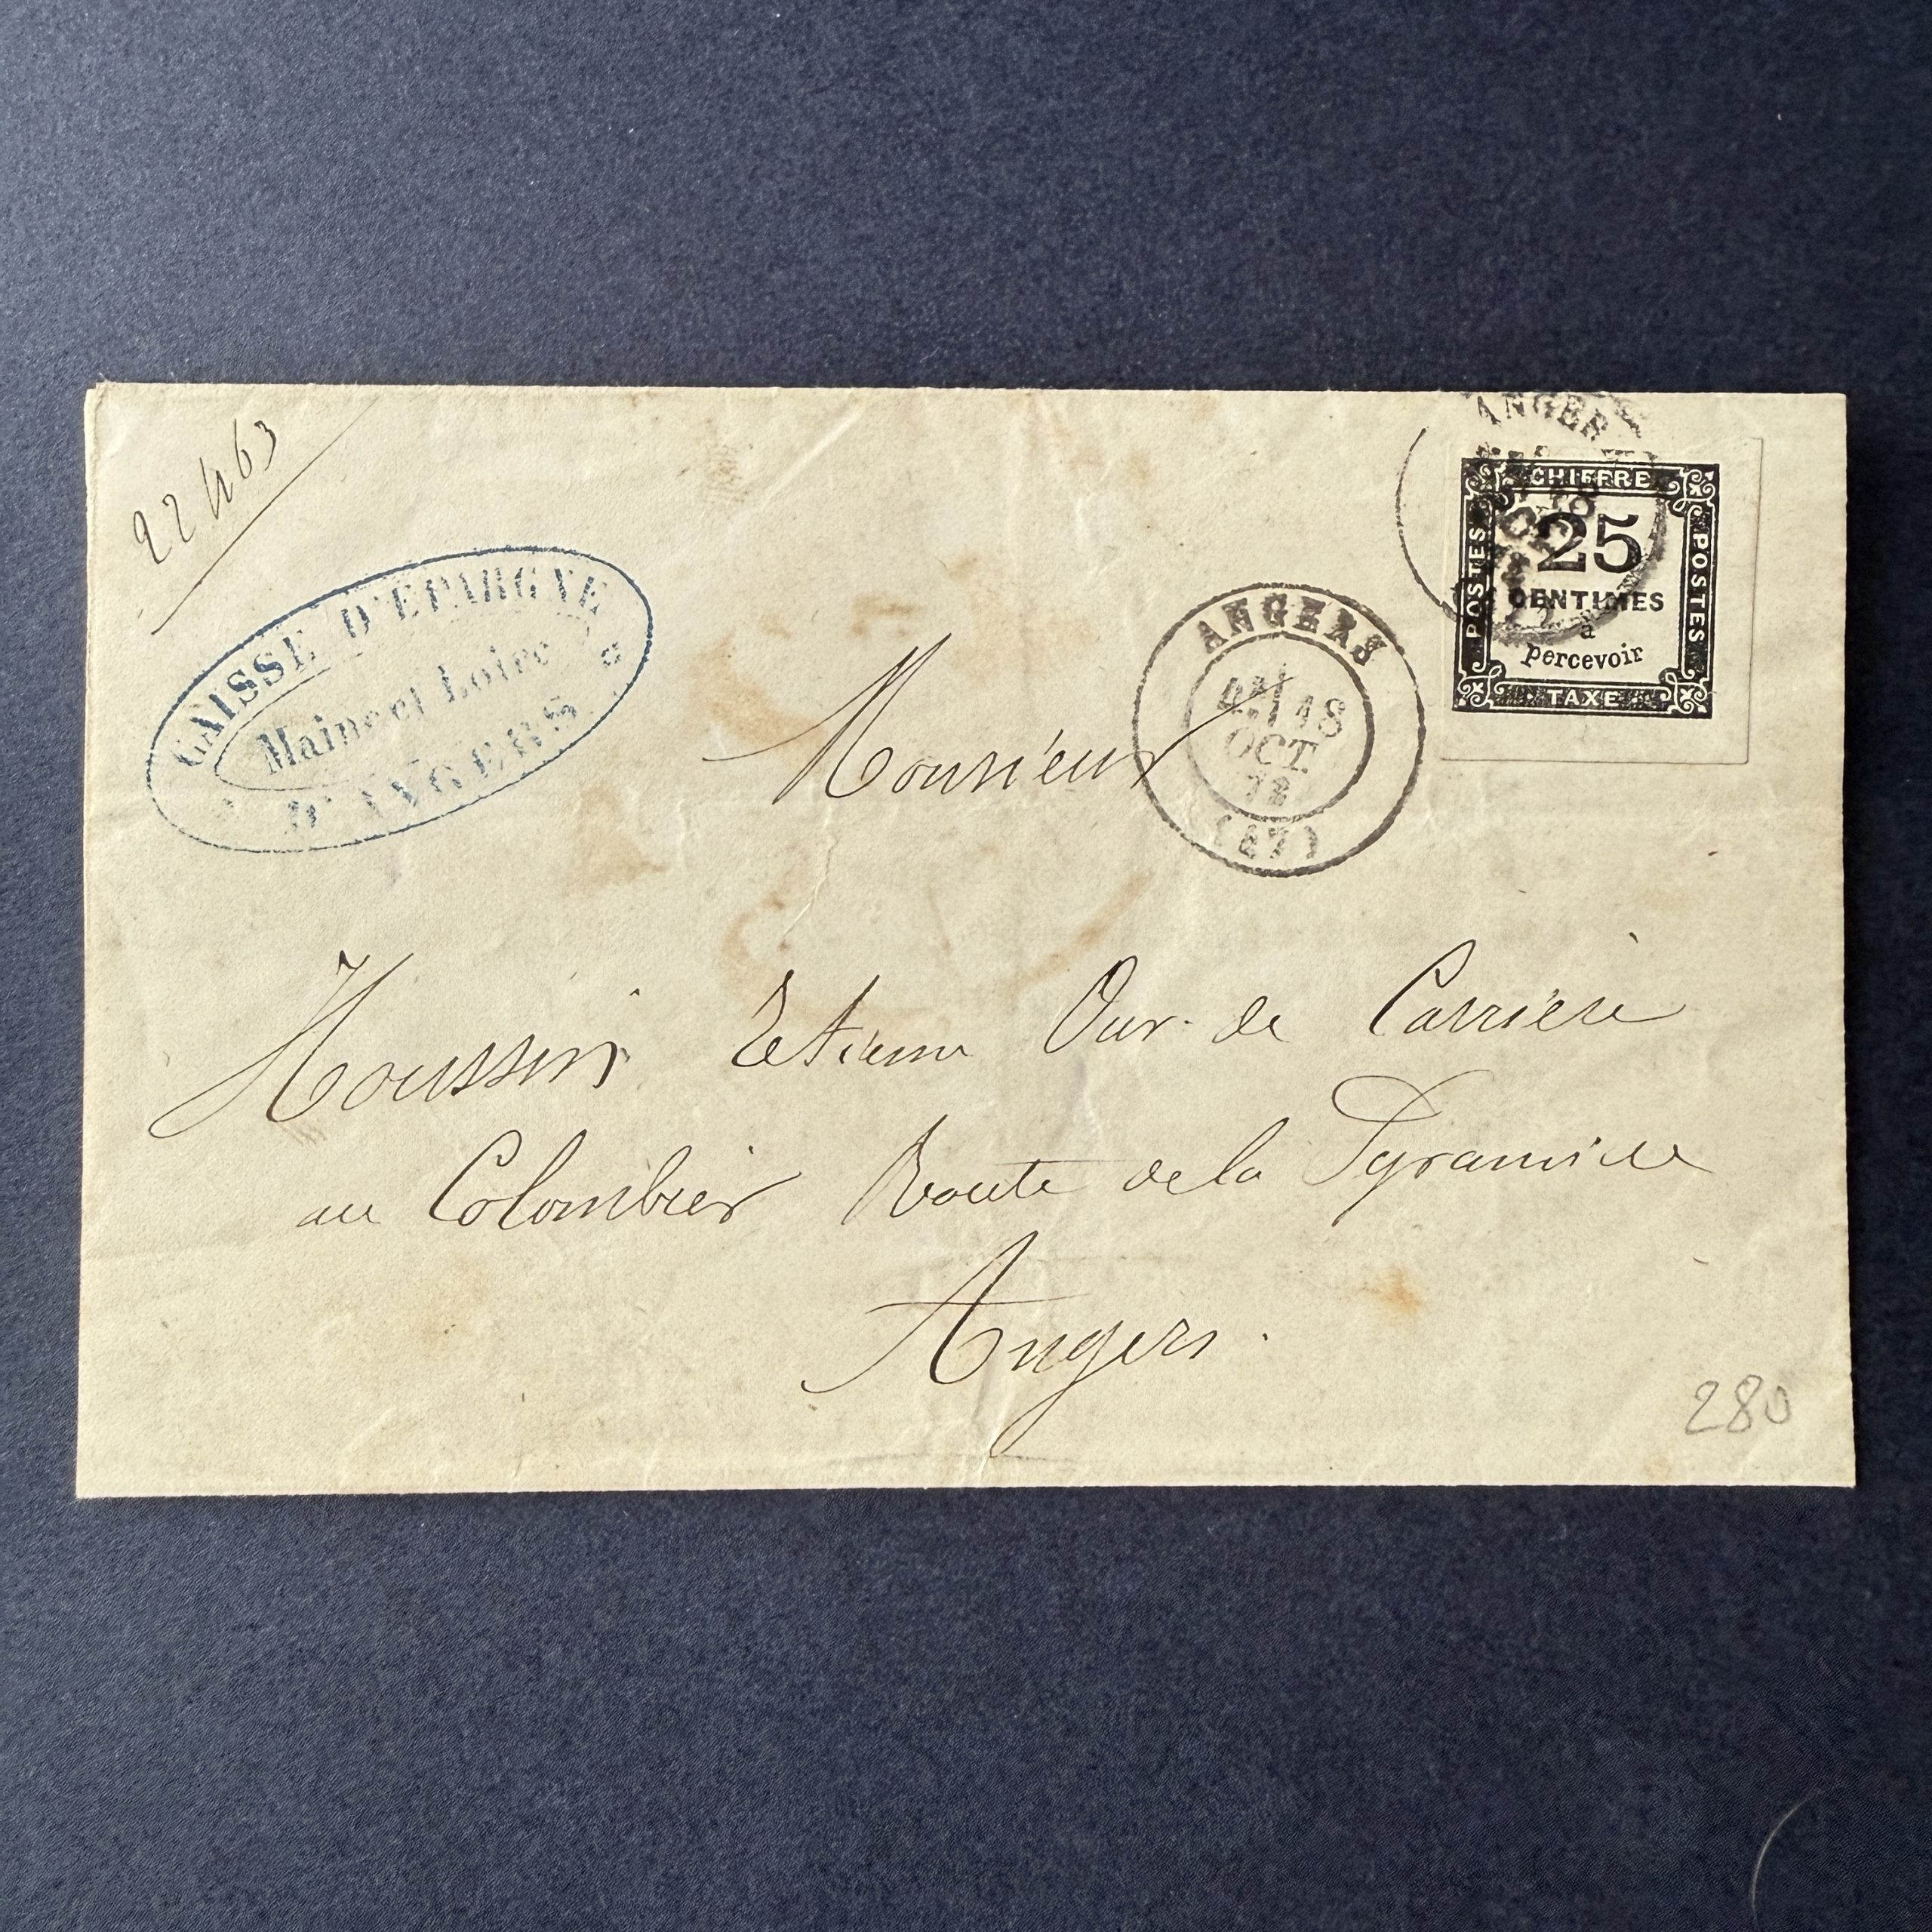 22463
CAISSE D'EPARGNE
Maine et Loire
D'ANGERS
ANGERS
18
OCT.
72
(47)
ANGERS
18
OCT
CHIFFRE
POSTES
25
CENTIMES
à
percevoir
POSTES
TAXE
Monsieur
Houssin Etienne Ouv. de Carrière
au Colombier Route de la Pyramide
Angers.
280